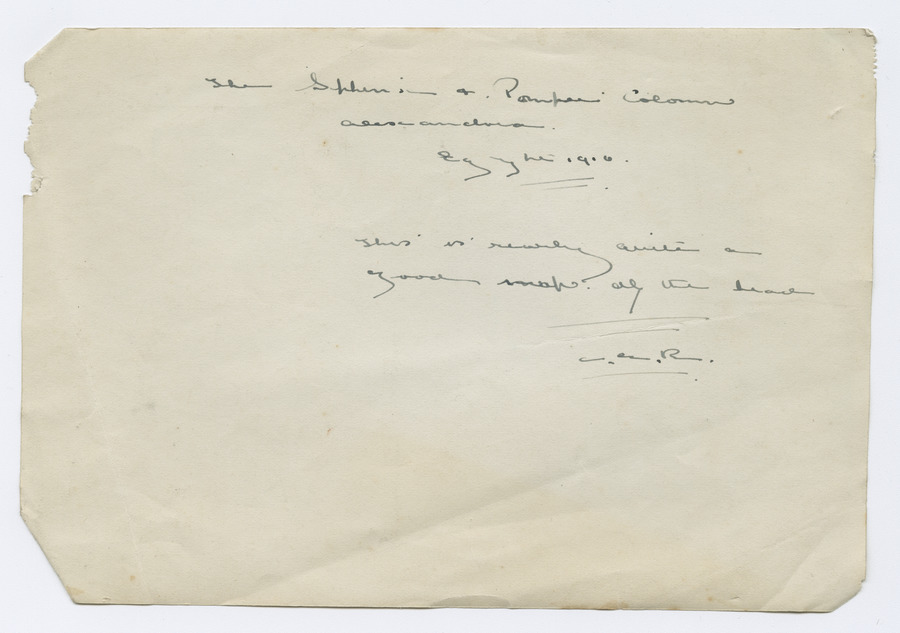 The Sphinx & Pompei Colomn
Alexandria.
Egypt 1916.
This is really quite a
good snap. of the head
R.